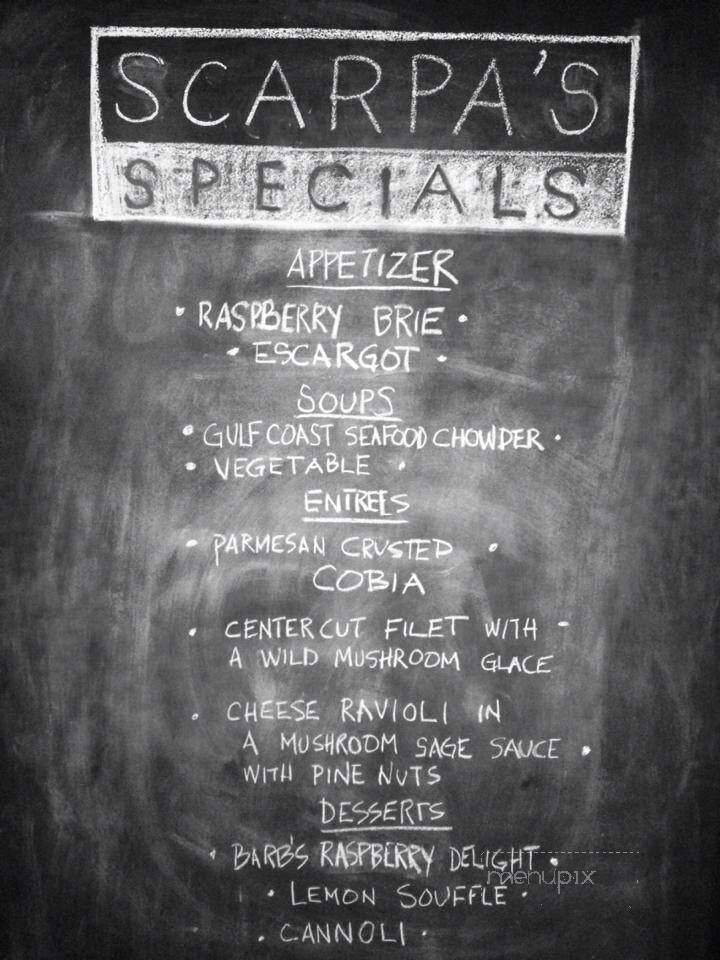 SCARPA'S
SPECIALS
APPETIZER
• RASPBERRY BRIE •
• ESCARGOT •
SOUPS
• GULF COAST SEAFOOD CHOWDER •
• VEGETABLE •
ENTREES
• PARMESAN CRUSTED •
COBIA
• CENTER CUT FILET WITH •
A WILD MUSHROOM GLACE
• CHEESE RAVIOLI IN
A MUSHROOM SAGE SAUCE •
WITH PINE NUTS
DESSERTS
• BARB'S RASPBERRY DELIGHT •
menupix
• LEMON SOUFFLE •
• CANNOLI •